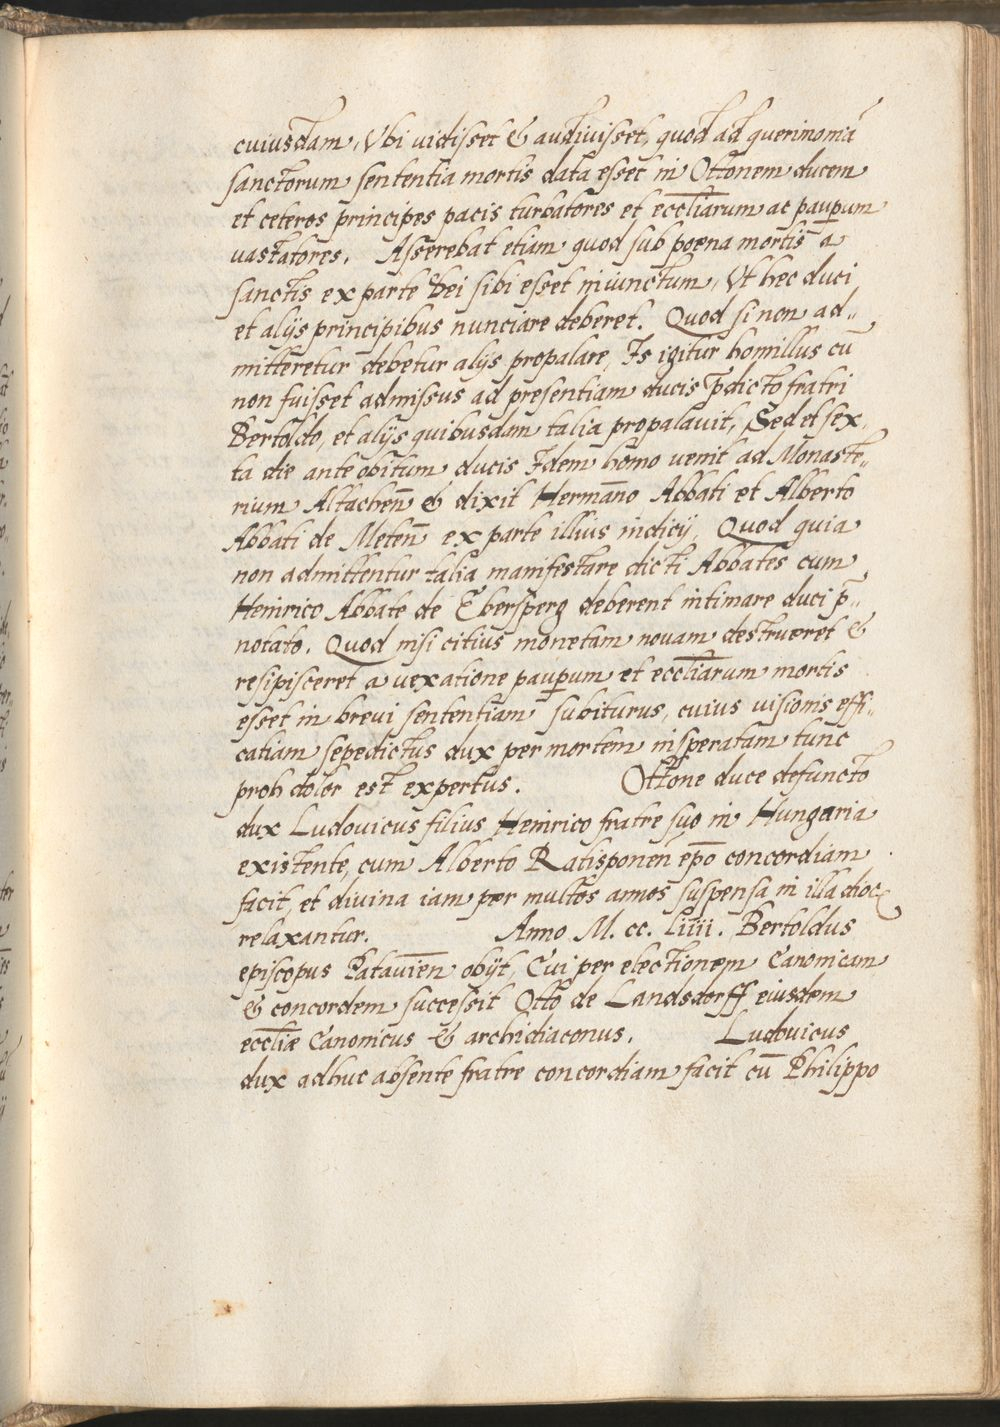 cuiusdam, Vbi uidisset & audiuisset, quod ad querimoniā
sanctorum sententia mortis data esset in Ottonem ducem
et ceteros principes pacis turbatores et eccl̄iarum ac paup̱um
uastatores. Asserebat etiam quod sub poena mortis a
sanctis ex parte dei sibi esset iniunctum, Vt hec duci
et alijs principibus nunciare deberet. Quod si non ad„
mitteretur debetur alijs propalare, Is igitur homillus cū
non fuisset admissus ad presentiam ducis p̄dicto fratri
Bertoldo, et alijs quibusdam talia propalauit, Sed et sex„
ta die ante obitum ducis Idem homo uenit ad Monaste„
rium Altachen̄ & dixit Herman̄o Abbati et Alberto
Abbati de Meten̄ ex parte illius indicij, Quod quia
non admittentur talia manifestare dicti Abbates cum
Heinrico Abbate de Ebersperg deberent intimare duci p̄„
notato. Quod nisi citius monetam nouam destrueret &
resipisceret a uexatione paup̱um et eccl̄iarum mortis
esset in breui sententiam subiturus, cuius uisionis effi„
catiam sepedictus dux per mortem insperatam tunc
proh dolor est expertus. Ottone duce defuncto
dux Ludouicus filius Heinrico fratre suo in Hungaria
existente, cum Alberto Ratisponen̄ ep̄o concordiam
facit, et diuina iam per multos annos suspensa in illa dioc
relaxantur. Anno M. cc. Liiii. Bertoldus
episcopus Patauien̄ obijt, Cui per electionem Canonicam
& concordem successit Otto de Landsdorff eiusdem
eccl̄iæ Canonicus & archidiaconus. Ludouicus
dux adhuc absente fratre concordiam facit cū Philippo